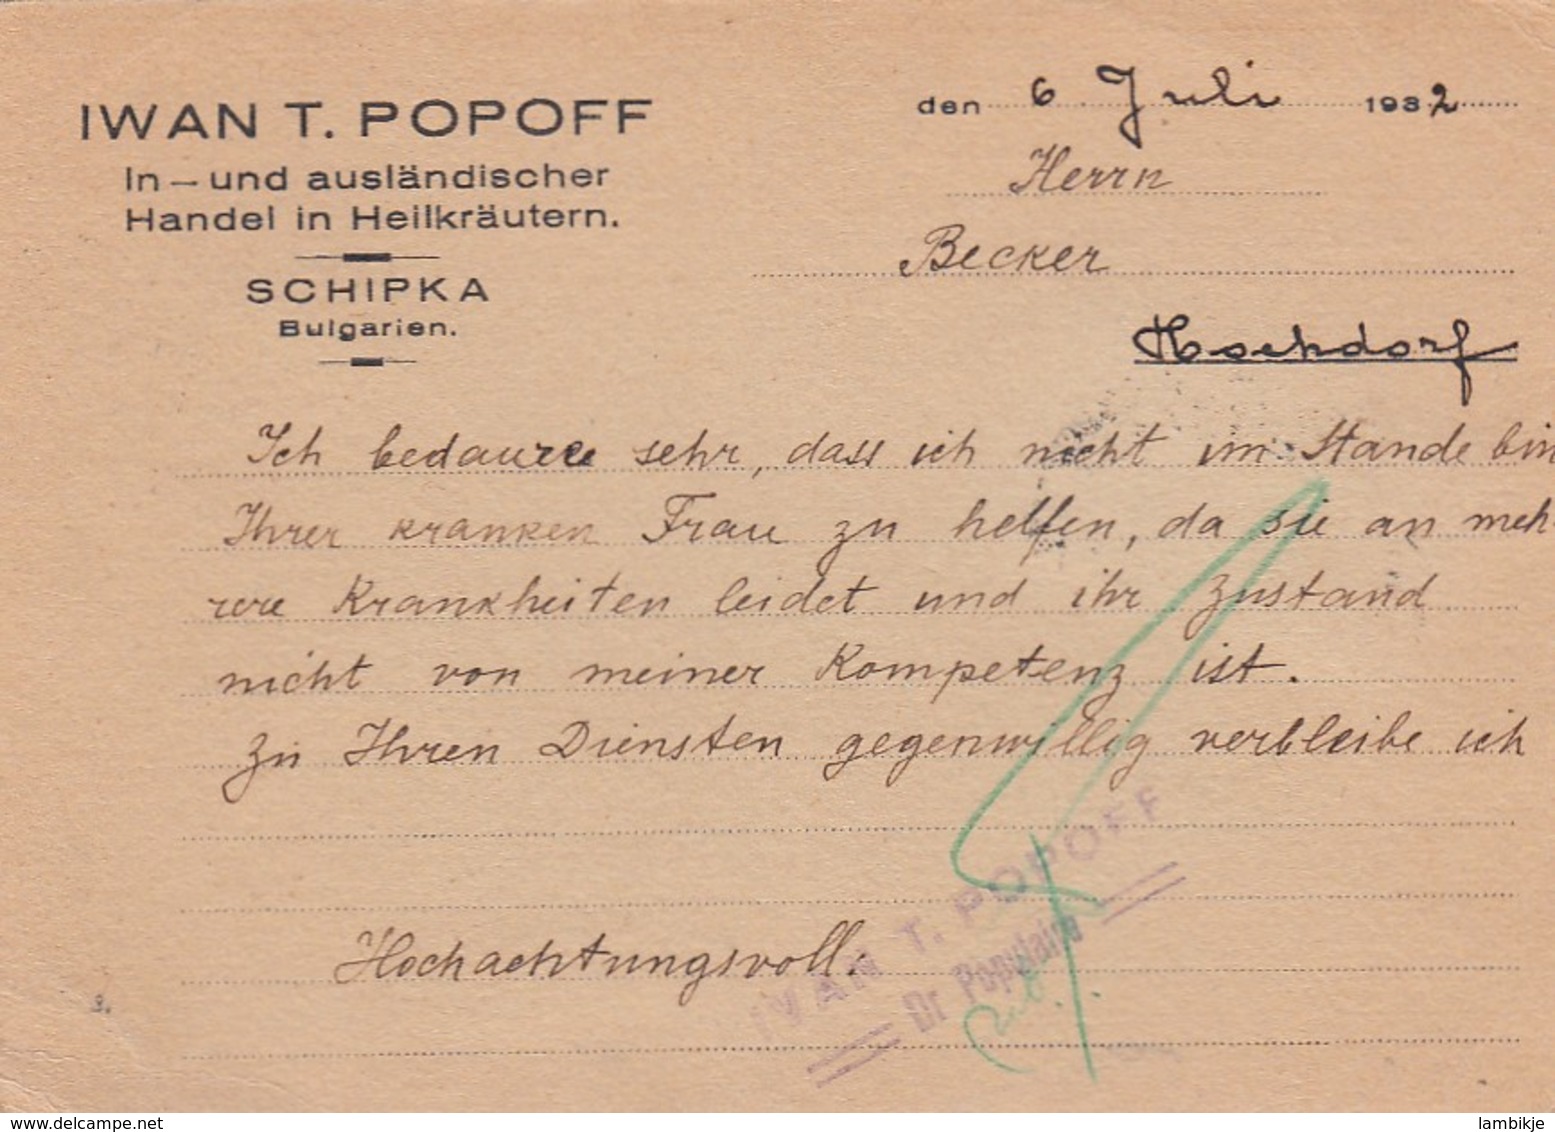 IWAN T. POPOFF
In – und ausländischer
Handel in Heilkräutern.
SCHIPKA
Bulgarien.
den 6 Juli 1932
Herrn
Becker
Hochdorf
Ich bedaure sehr, dass ich nicht im Stande bin
Ihrer kranken Frau zu helfen, da sie an meh-
rere Krankheiten leidet und ihr Zustand
nicht von meiner Kompetenz ist.
Zu Ihren Diensten gegenwillig verbleibe ich
Hochachtungsvoll.
IVAN T. POPOFF
Dr Populaire
3.
delcampe.net
lambikje